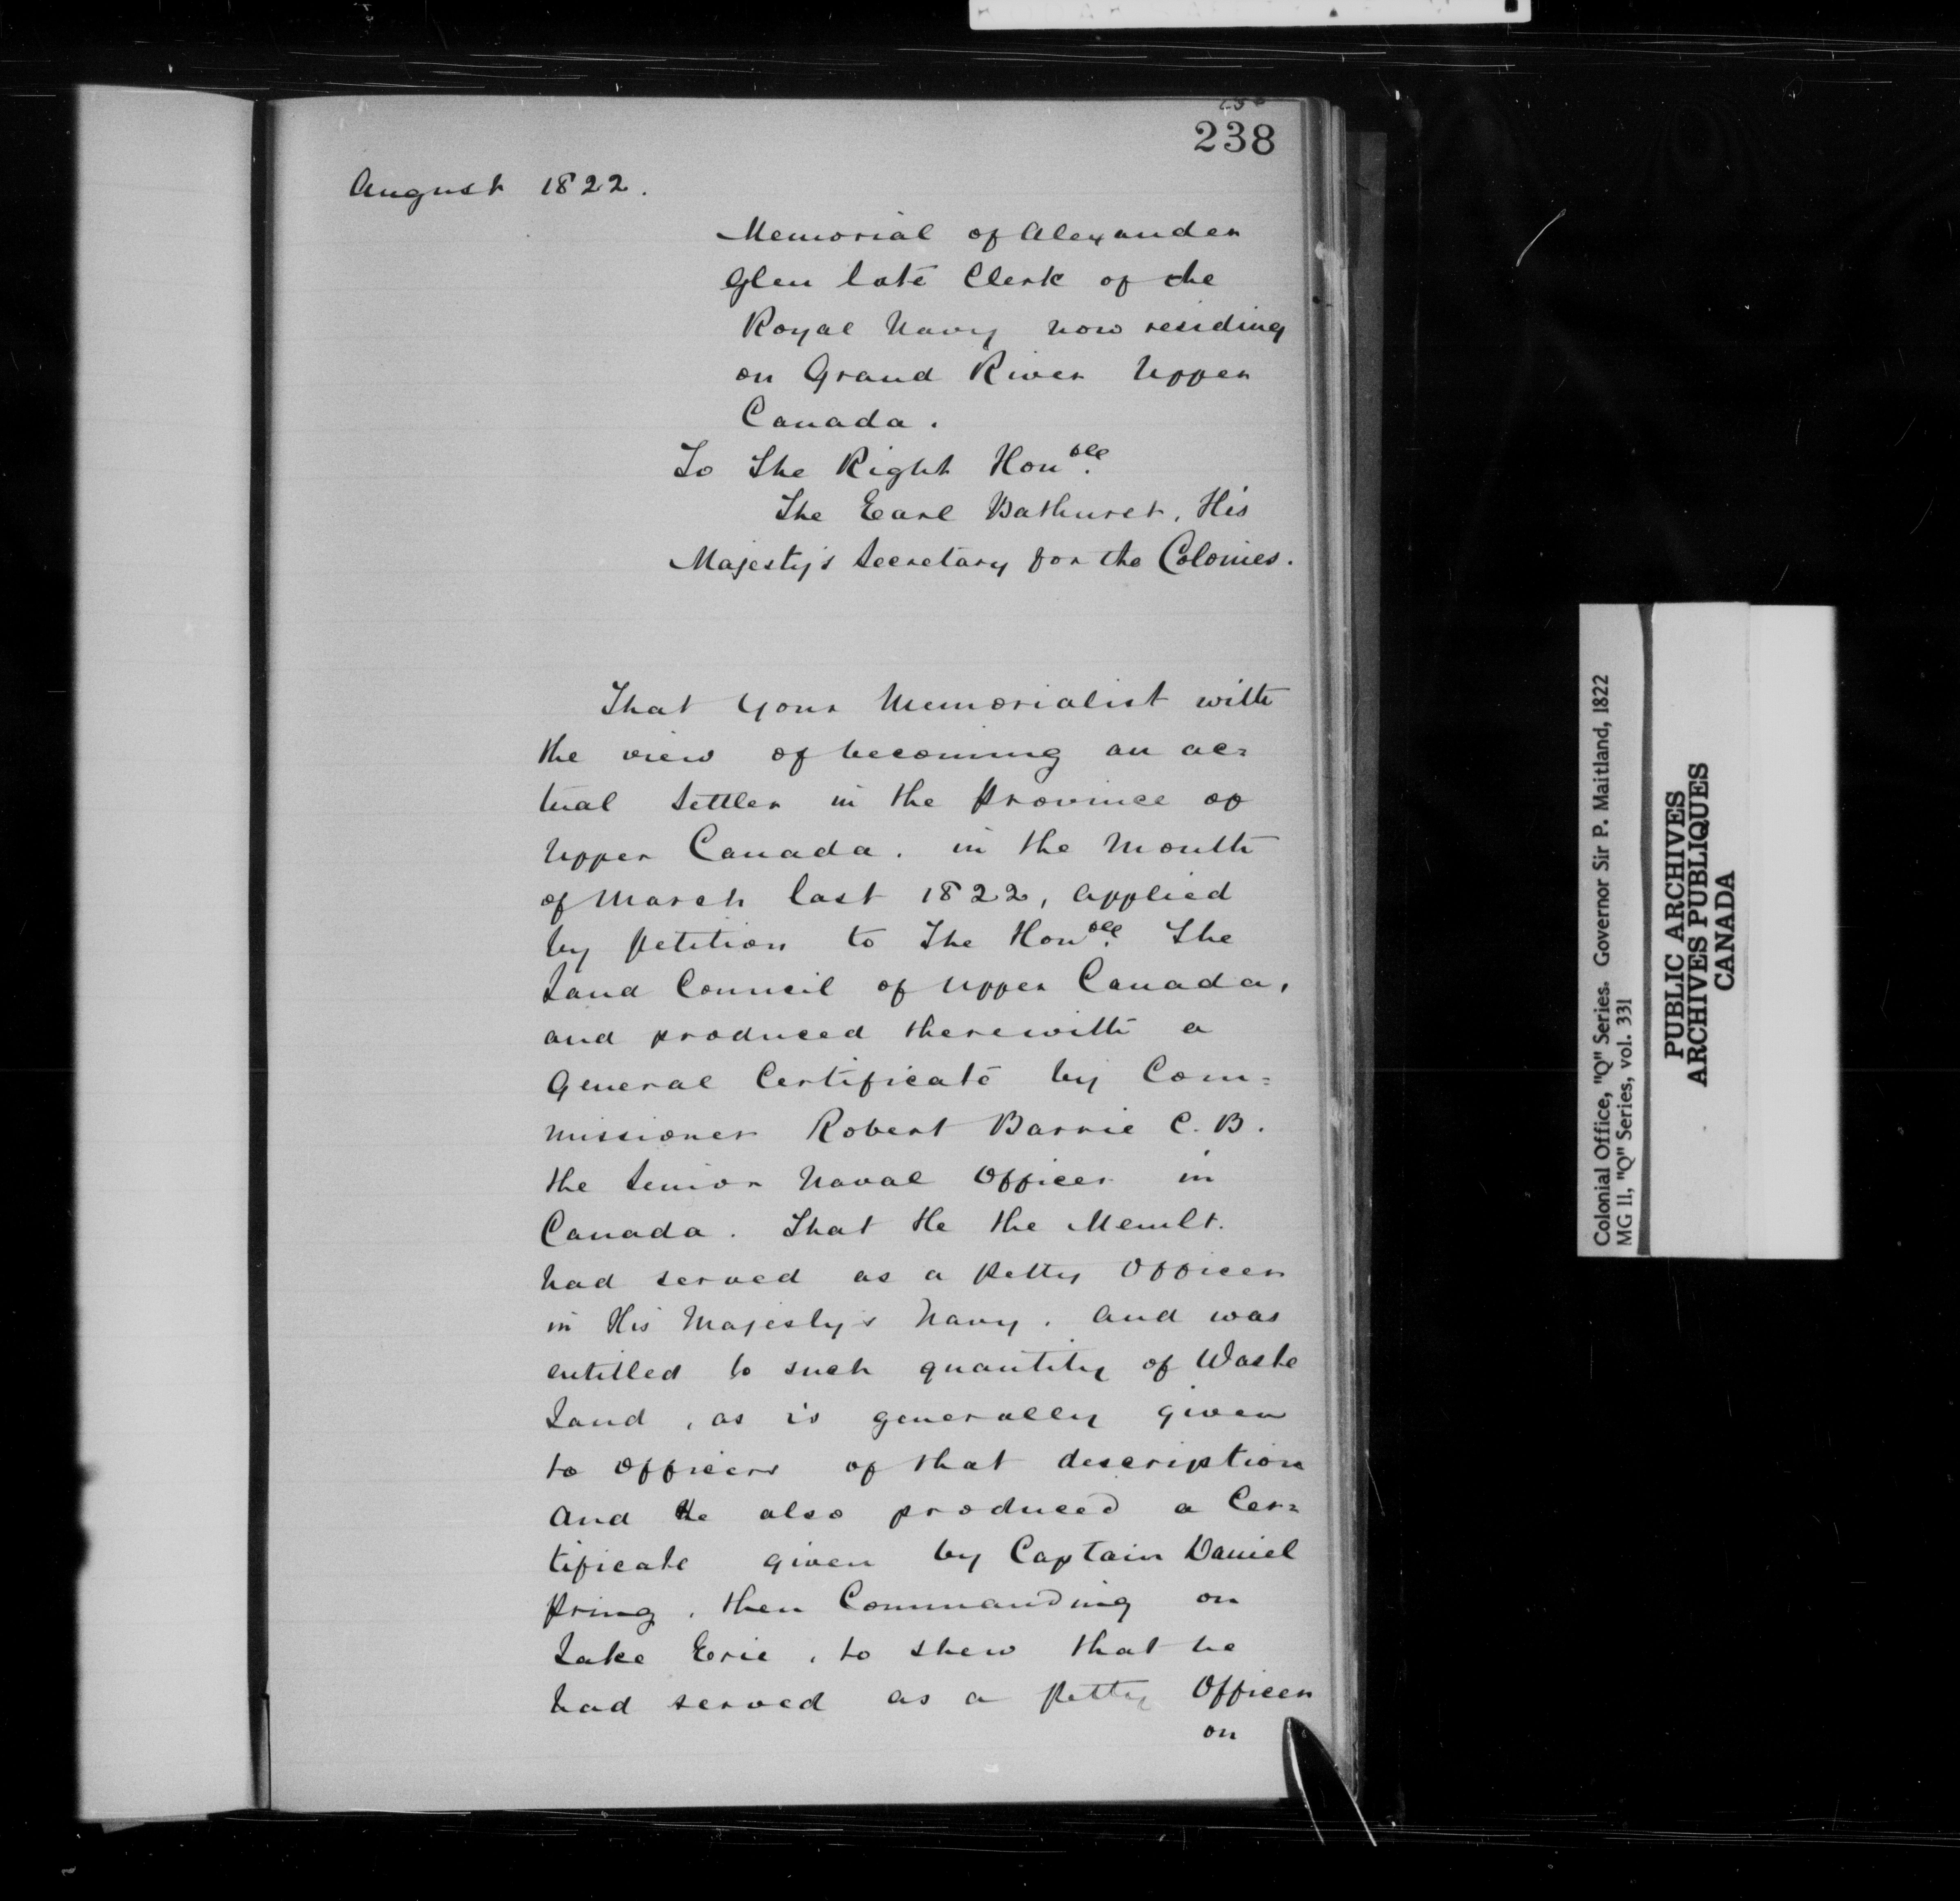 238
August 1822.
Memorial of Alexander
Glen late Clerk of the
Royal Navy now residing
on Grand River Upper
Canada.
To The Right Honble.
The Earl Bathurst, His
Majesty's Secretary for the Colonies.
That Your Memorialist with
the view of becoming an ac=
tual Settler in the Province of
Upper Canada. in the Month
of March last 1822, applied
by Petition to The Honble. The
Land Council of Upper Canada,
and produced therewith a
General Certificate by Com=
missioner Robert Barrie C.B.
the Senior Naval Officer in
Canada. That He the Memlt.
had served as a Petty Officer
in His Majesty's Navy. and was
entitled to such quantity of Waste
Land, as is generally given
to Officers of that description
and He also produced a Cer=
tificate given by Captain Daniel
Pring, then Commanding on
Lake Erie, to shew that he
had served as a Petty Officer
on
Colonial Office, "Q" Series. Governor Sir P. Maitland, 1822
MG 11, "Q" Series, vol. 331
PUBLIC ARCHIVES
ARCHIVES PUBLIQUES
CANADA